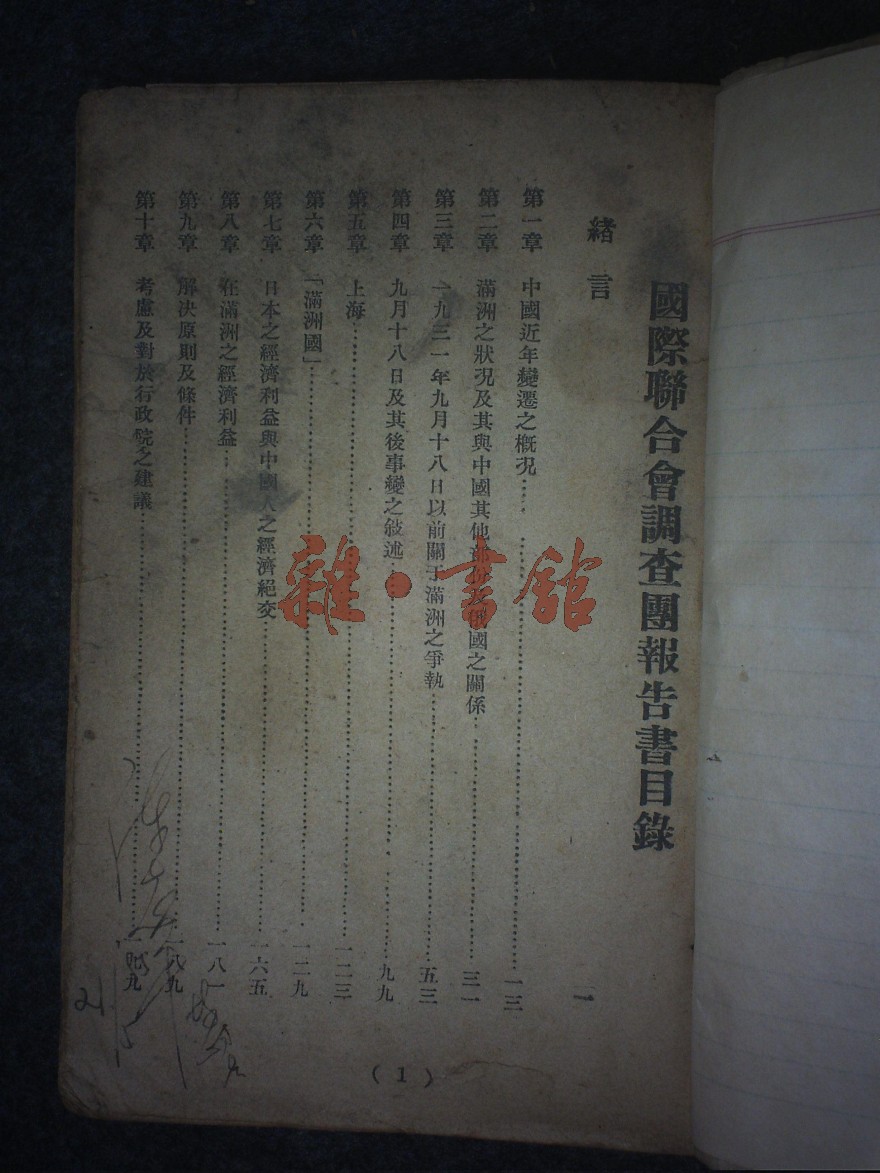 國際聯合會調查團報告書目錄
緒言 一
第一章 中國近年變遷之概況 一三
第二章 滿洲之狀況及其與中國其他部份及俄國之關係 三一
第三章 一九三一年九月十八日以前關于滿洲之爭執 五三
第四章 九月十八日及其後事變之敍述 九九
第五章 上海 一二三
第六章 「滿洲國」 一二九
第七章 日本之經濟利益與中國人之經濟絕交 一六五
第八章 在滿洲之經濟利益 一八一
第九章 解決原則及條件 一八九
第十章 考慮及對於行政院之建議
(1)
雜·書館